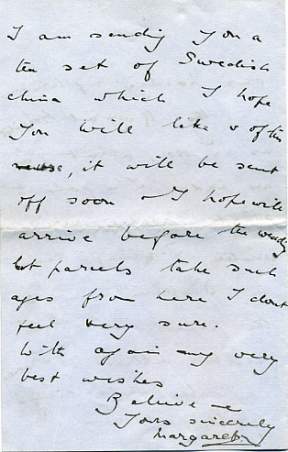 I am sending you a
tea set of Swedish
china which I hope
you will like & of
, it will be sent
off soon & I hope will
arrive before the wedding
but parcels take such
ages from here I dont
feel very sure.
With again my very
best wishes
Believe me
Yours sincerely
Margaret